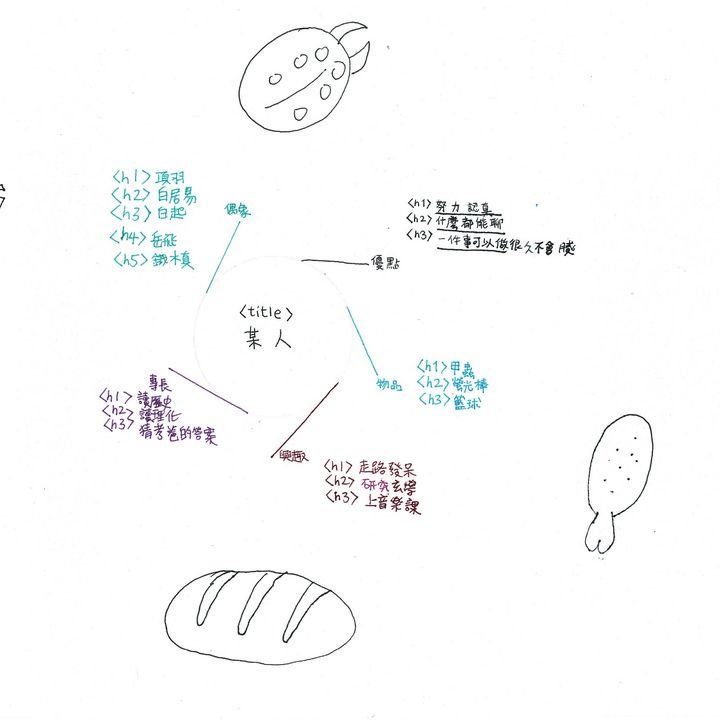 <h1> 項羽
<h2> 白居易
<h3> 白起
<h4> 岳飛
<h5> 鐵木真
偶像
<h1> 努力認真
<h2> 什麼都能聊
<h3> 一件事可以做很久不會膩
優點
<title>
某人
物品
<h1> 甲蟲
<h2> 螢光棒
<h3> 籃球
專長
<h1> 讀歷史
<h2> 讀理化
<h3> 猜考卷的答案
興趣
<h1> 走路發呆
<h2> 研究玄學
<h3> 上音樂課